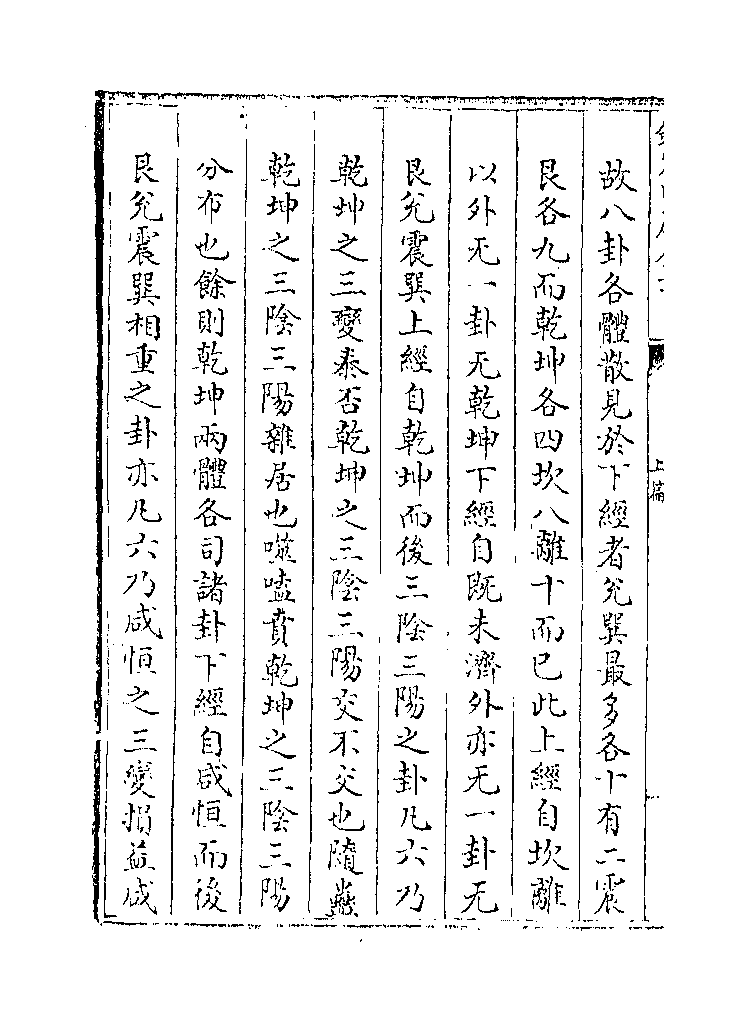 故八卦各體散見於下經者兊巽最多各十有二震
艮各九而乾坤各四坎八離十而已此上經自坎離
以外无一卦无乾坤下經自既未濟外亦无一卦无
艮兊震巽上經自乾坤而後三陰三陽之卦凡六乃
乾坤之三變泰否乾坤之三陰三陽交不交也隨蠱
乾坤之三陰三陽雜居也噬嗑賁乾坤之三陰三陽
分布也餘則乾坤兩體各司諸卦下經自咸恒而後
艮兊震巽相重之卦亦凡六乃咸恒之三變損益咸
上篇